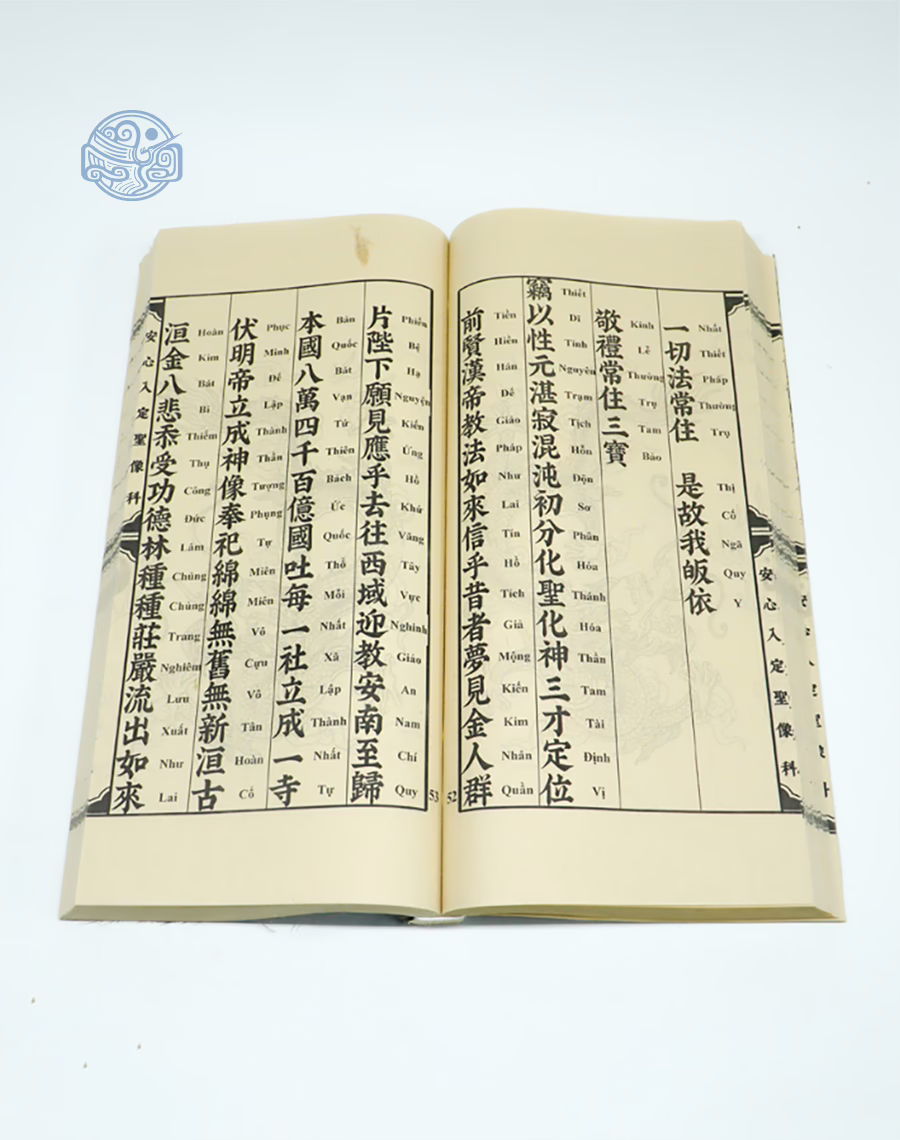 安心入定聖像科
一切法常住 是故我皈依
Nhất Thiết Pháp Thường Trụ Thị Cố Ngã Quy Y
敬禮常住三寶
Kính Lễ Thường Trụ Tam Bảo
竊以性元湛寂混沌初分化聖化神三才定位
Thiết Dĩ Tính Nguyên Trạm Tịch Hỗn Độn Sơ Phân Hóa Thánh Hóa Thần Tam Tài Định Vị
前賢漢帝教法如來信乎昔者夢見金人群
Tiền Hiền Hán Đế Giáo Pháp Như Lai Tín Hồ Tích Giả Mộng Kiến Kim Nhân Quần
52
53
片陛下願見應乎去往西域迎教安南至歸
Phiếm Bệ Hạ Nguyện Kiến Ứng Hồ Khứ Vãng Tây Vực Nghinh Giáo An Nam Chí Quy
本國八萬四千百億國吐每一社立成一寺
Bản Quốc Bát Vạn Tứ Thiên Bách Ức Quốc Thổ Mỗi Nhất Xã Lập Thành Nhất Tự
伏明帝立成神像奉祀綿綿無舊無新洹古
Phục Minh Đế Lập Thành Thần Tượng Phụng Tự Miên Miên Vô Cựu Vô Tân Hoàn Cổ
洹金八悲忝受功德林種種莊嚴流出如來
Hoàn Kim Bát Bi Thiểm Thụ Công Đức Lâm Chủng Chủng Trang Nghiêm Lưu Xuất Như Lai
安心入定聖像科